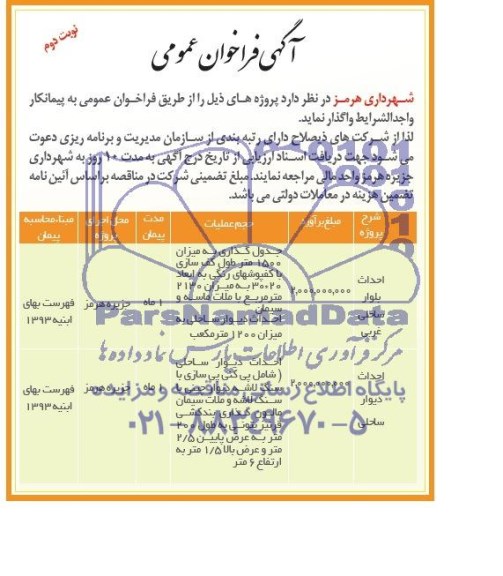 نوبت دوم
آگهی فراخوان عمومی
شهرداری هرمز در نظر دارد پروژه های ذیل را از طریق فراخوان عمومی به پیمانکار
واجدالشرایط واگذار نماید.
لذا از شرکت های ذیصلاح دارای رتبه بندی از سازمان مدیریت و برنامه ریزی دعوت
می شود جهت دریافت اسناد ارزیابی از تاریخ درج آگهی به مدت ۱۰ روز به شهرداری
جزیره هرمز واحد مالی مراجعه نمایند. مبلغ تضمینی شرکت در مناقصه بر اساس آئین نامه
تضمین هزینه در معاملات دولتی می باشد.
شرح پروژه
مبلغ برآورد
حجم عملیات
مدت پیمان
محل اجرای پروژه
مبنا، محاسبه پیمان
احداث
بلوار
ساحلی
غربی
۲,۰۰۰,۰۰۰,۰۰۰
جدول گذاری به میزان
۱۵۰۰ متر طول کف سازی
با کفپوشهای رنگی به ابعاد
۲۰*۳۰ به میزان ۲۱۳۰
مترمربع با ملات ماسه و
سیمان
احداث دیوار ساحلی به
میزان ۱۲۰۰ مترمکعب
۱ ماه
جزیره هرمز
فهرست بهای
ابنیه ۱۳۹۳
احداث
دیوار
ساحلی
۲,۰۰۰,۰۰۰,۰۰۰
احداث دیوار ساحلی
(شامل پی کنی پی سازی با
سنگ لاشه و
سنگ لاشه و ملات سیمان
بندکشی
بتونی به طول ۲۰۰
متر به عرض پایین ۲/۵
متر و عرض بالا ۱/۵ متر به
ارتفاع ۶ متر
۱ ماه
جزیره هرمز
فهرست بهای
ابنیه ۱۳۹۳
ParsNamadData
مرکز فرآوری اطلاعات پارس نماد داده ها
پایگاه اطلاع رسانی مناقصه و مزایده
۰۲۱-۸۸۳۴۹۶۷۰-۵